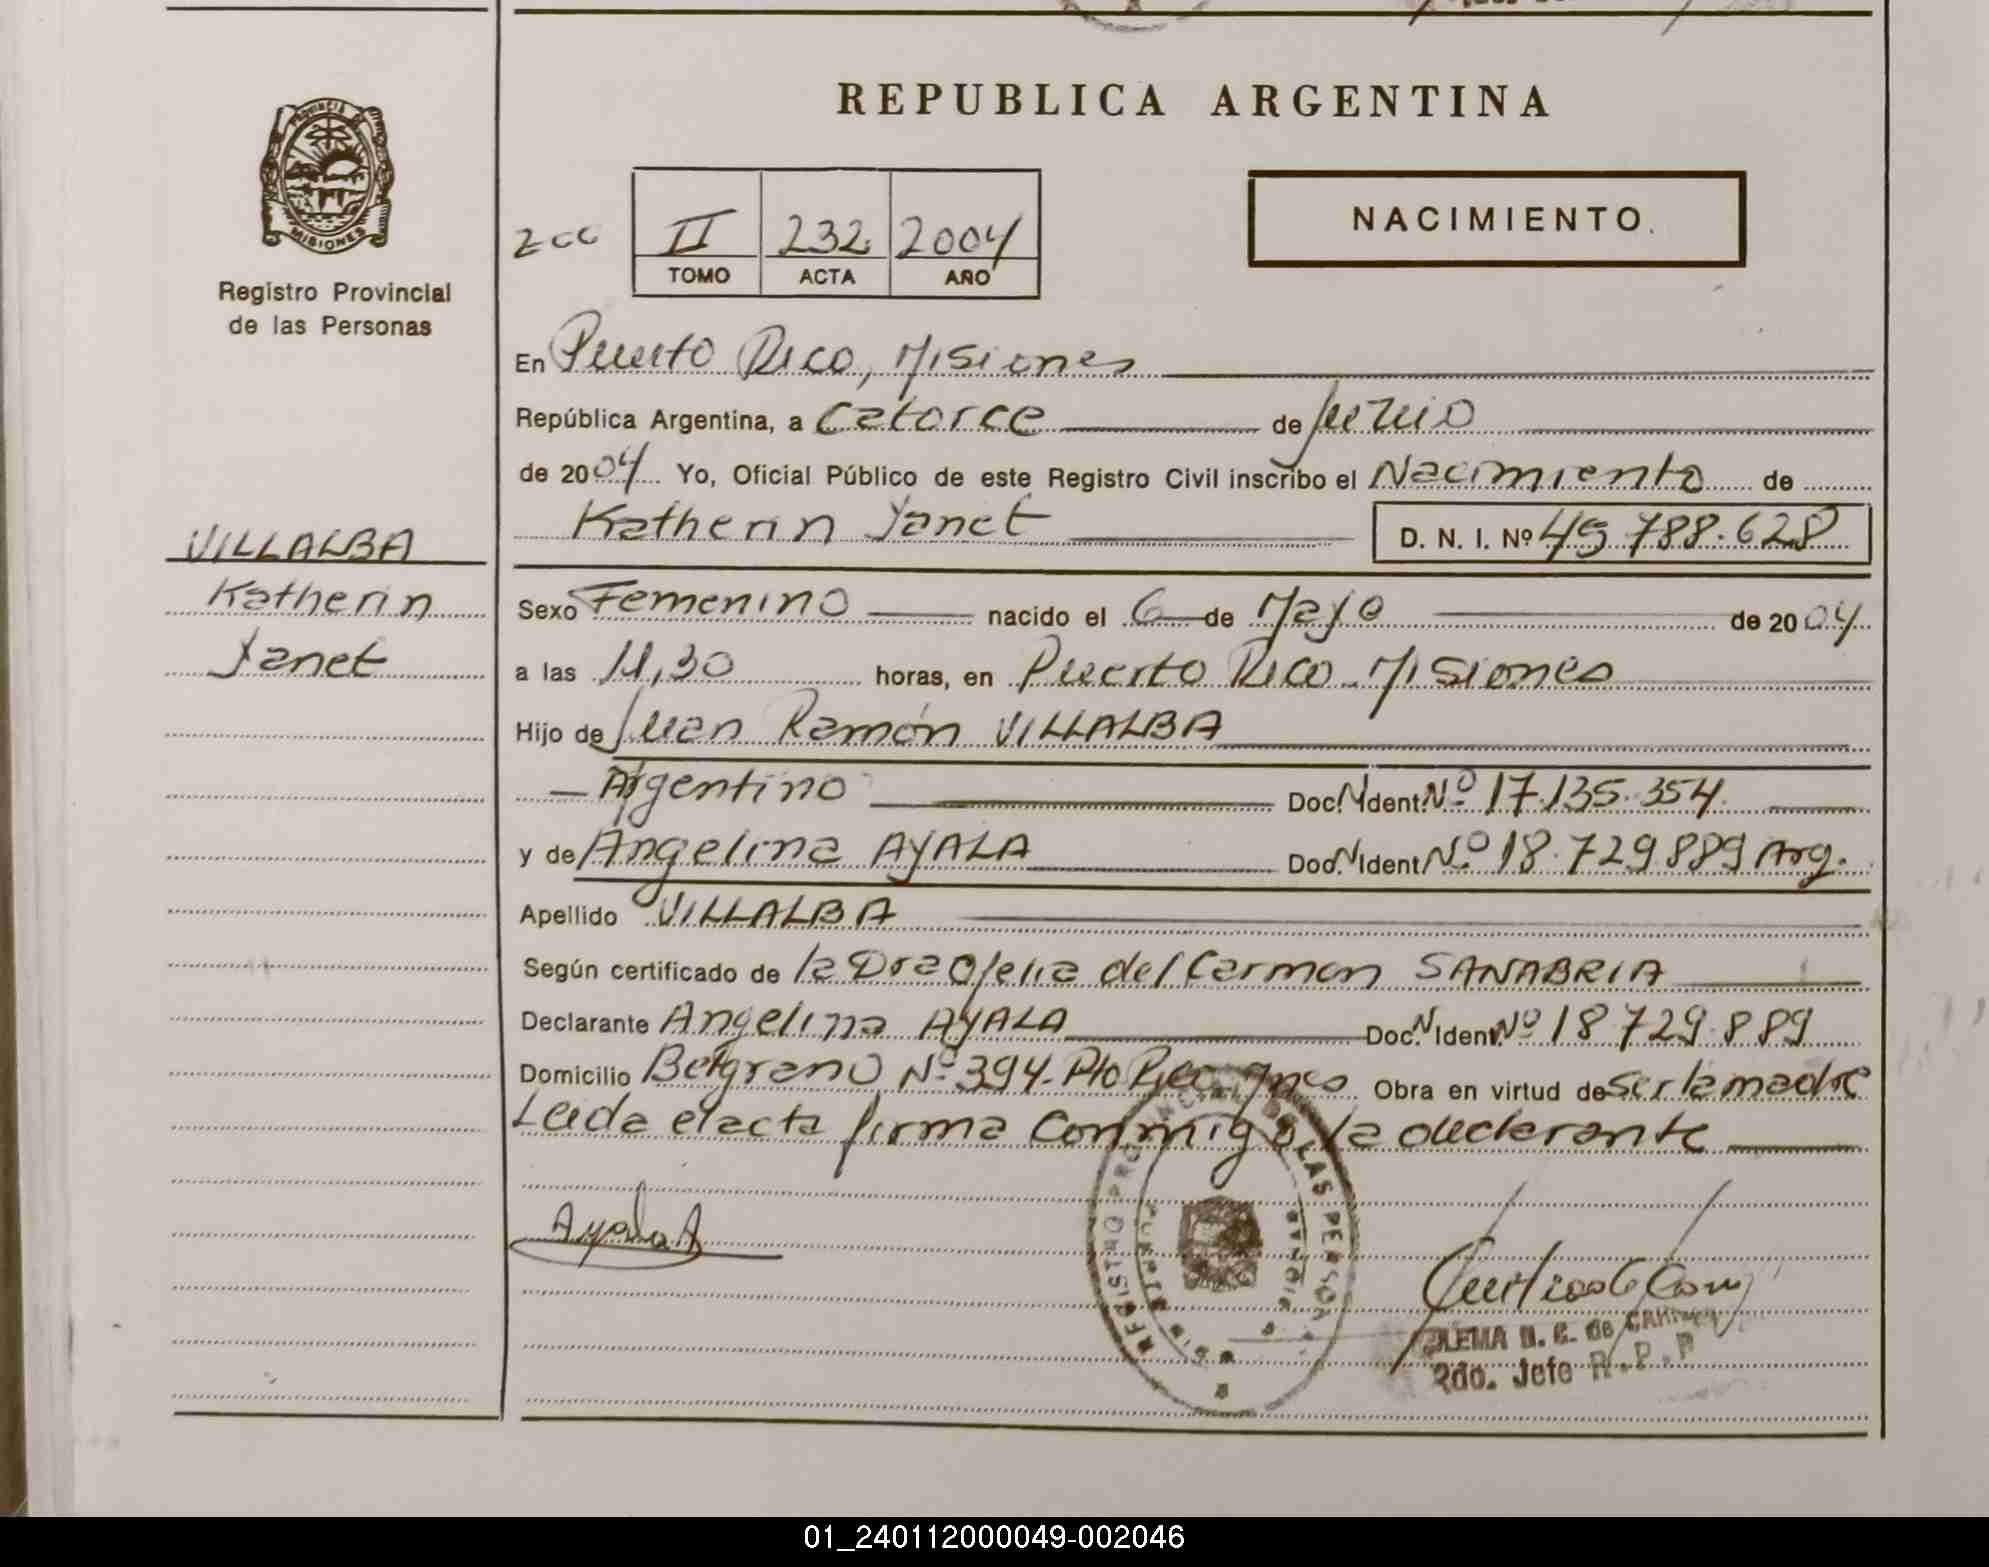 REPUBLICA ARGENTINA
PROVINCIA DE
MISIONES
Registro Provincial
de las Personas
2cc
II 232 2004
TOMO ACTA AÑO
NACIMIENTO.
En Puerto Rico, Misiones
República Argentina, a catorce de Junio
de 2004 Yo, Oficial Público de este Registro Civil inscribo el Nacimiento de
Katherin Yanet D. N. I. Nº 45.788.628
VILLALBA
Katherin
Yanet
Sexo Femenino nacido el 6 de Mayo de 2004
a las 11,30 horas, en Puerto Rico Misiones
Hijo de Juan Ramón VILLALBA
Argentino Doc. N Ident. Nº 17.135.354
y de Angelina AYALA Doc. N Ident. Nº 18.729.889 Arg.
Apellido VILLALBA
Según certificado de la Dra Ofelia del Carmen SANABRIA
Declarante Angelina AYALA Doc. N Ident. Nº 18.729.889
Domicilio Belgrano Nº 394- Pto Rico Mnes Obra en virtud de ser la madre
Leida el acta firma conmigo la declarante
Ayala A
REGISTRO PROVINCIAL DE LAS PERSONAS
MISIONES
N. C. de
Rdo. Jefe R.P.P
01_240112000049-002046